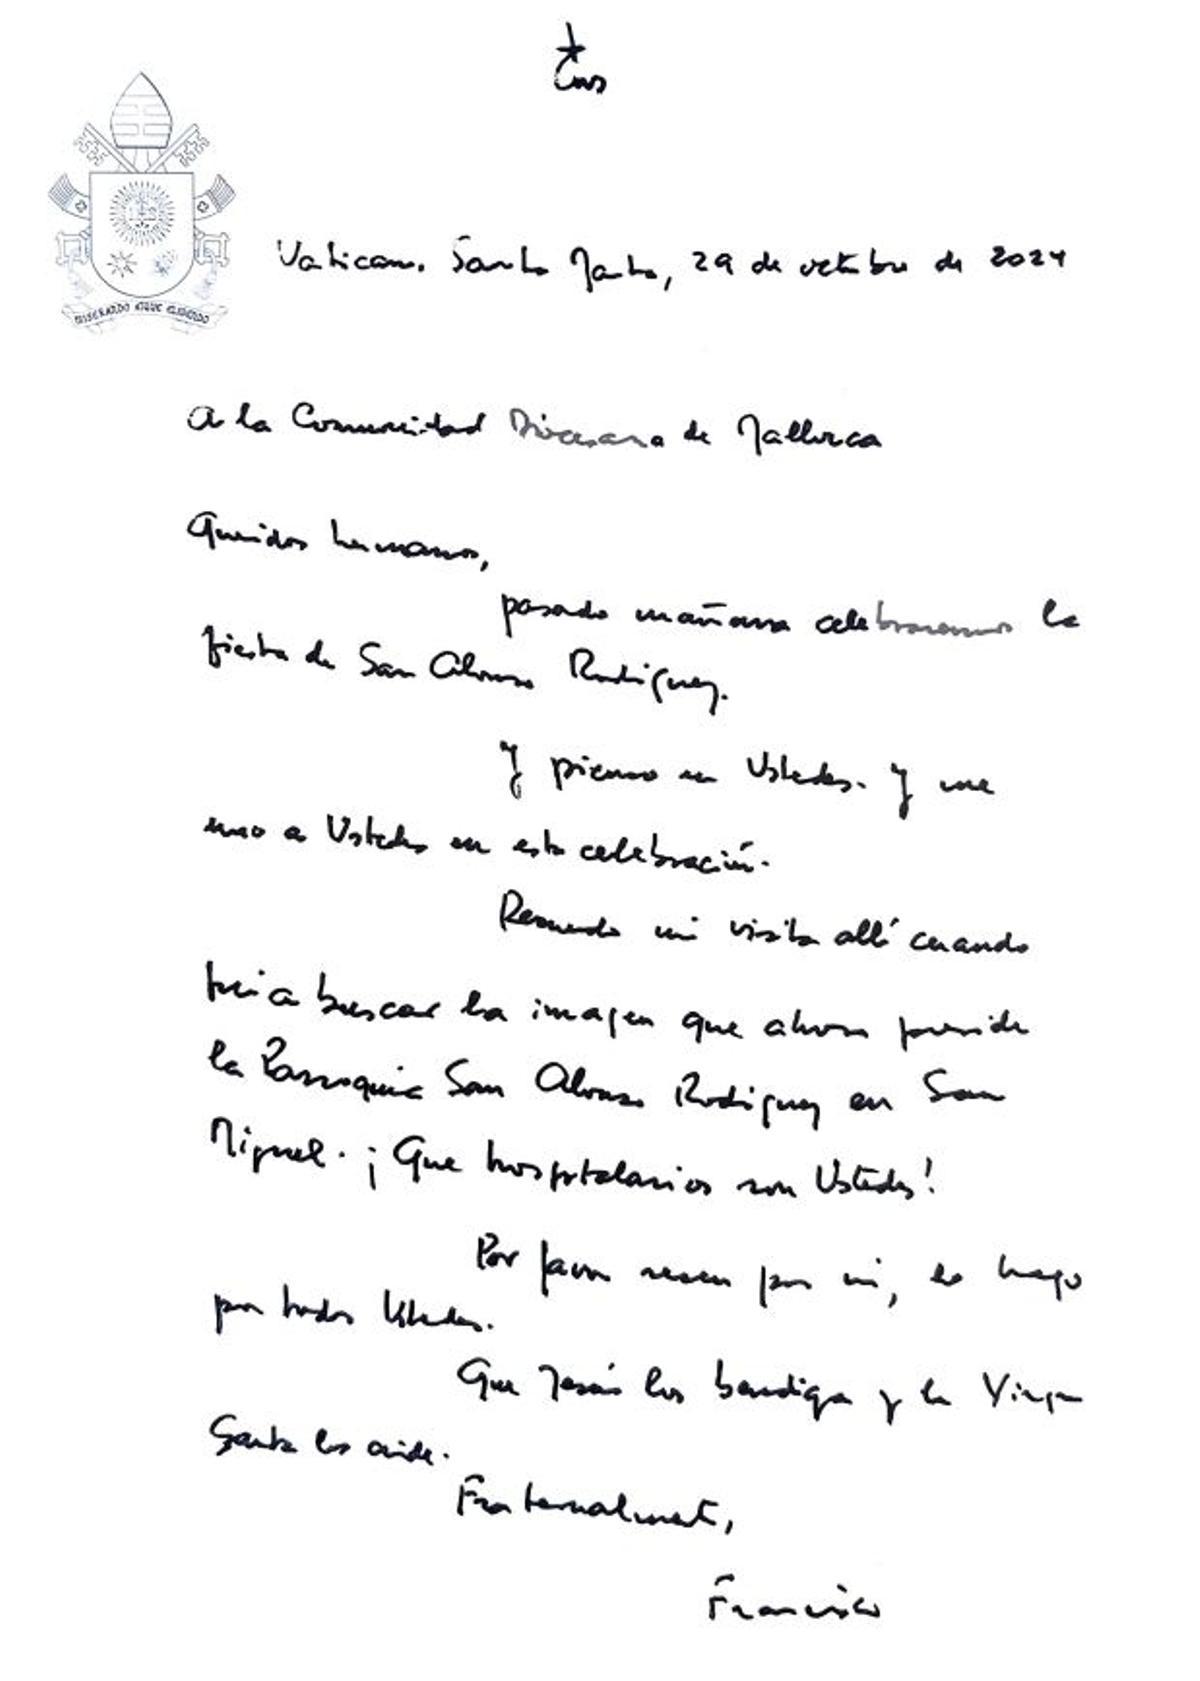 MISERANDO ATQUE ELIGENDO
Vaticano. Santa Marta, 29 de octubre de 2024
A la Comunidad Diocesana de Mallorca
Queridos hermanos,
pasado mañana celebraremos la
fiesta de San Alonso Rodriguez.
Y pienso en Ustedes. Y me
uno a Ustedes en esta celebración.
Recuerdo mi visita allí cuando
fui a buscar la imagen que ahora preside
la Parroquia San Alonso Rodriguez en San
Miguel. ¡Que hospitalarios son Ustedes!
Por favor recen por mi, lo hago
por todos Ustedes.
Que Jesús los bendiga y la Virgen
Santa los cuide.
Fraternalmente,
Francisco